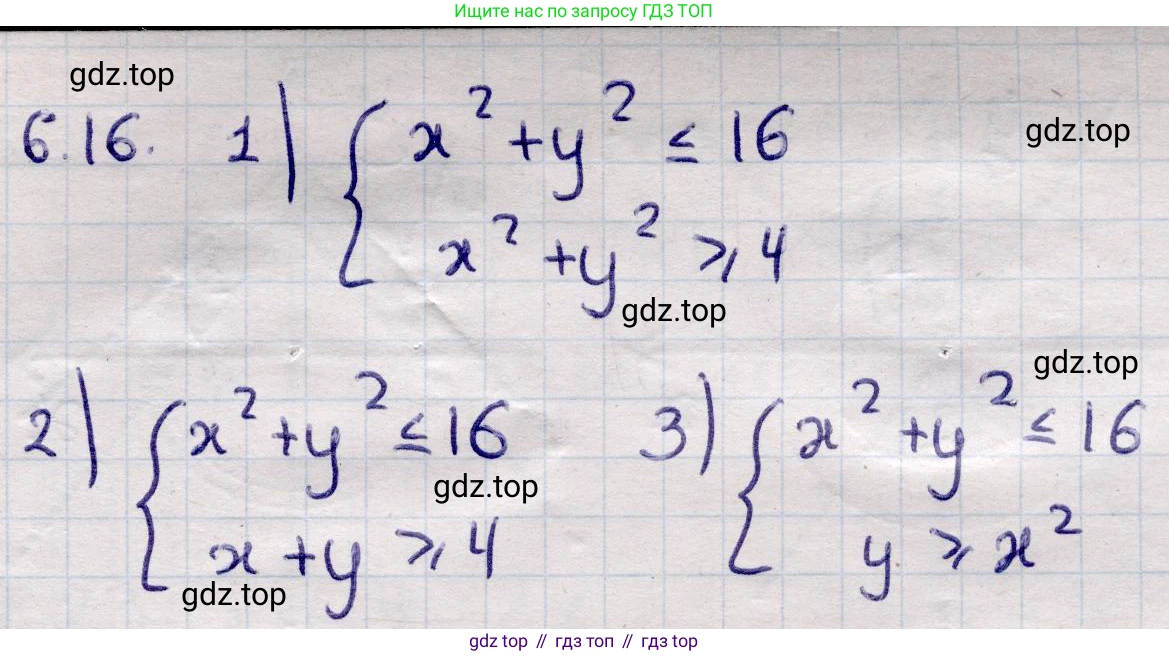 Ищите нас по запросу ГДЗ ТОП
gdz.top
6.16. 1) { x² + y² ≤ 16
gdz.top
x² + y² ⩾ 4
gdz.top
gdz.top
2) { x² + y² ≤ 16 3) { x² + y² ≤ 16
gdz.top
x + y ⩾ 4 y ⩾ x²
gdz.top
gdz top // гдз топ // гдз top